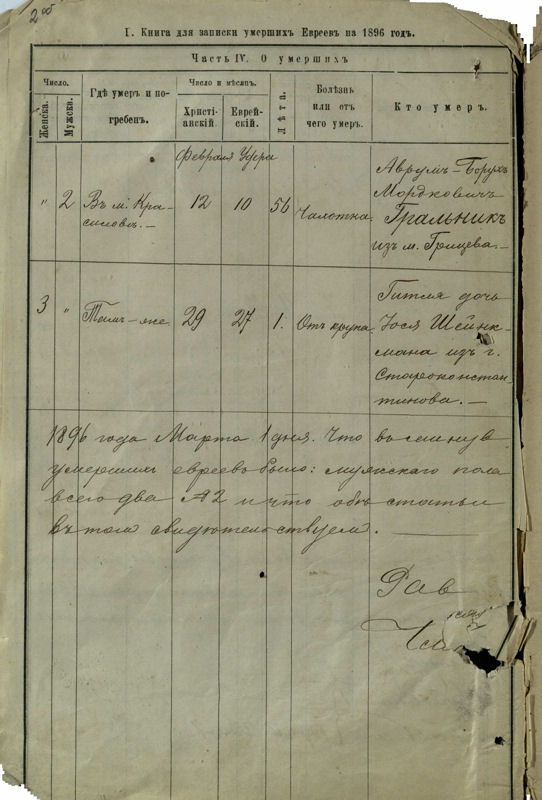 2 об
I. Книга для записки умершихъ Евреевъ на 1896 годъ.
Часть IV. О умершихъ
Число.
Женска.
Мужска.
Гдѣ умеръ и по-
гребенъ.
Число и мѣсяцъ.
Христі-
анскій.
Еврей-
скій.
Лѣта.
Болѣзнь
или отъ
чего умеръ.
Кто умеръ.
Февраля Удера
" 2 Въ м. Кра-
силовѣ. —
12 10 56 Чахотка.
Аврумъ-Борухъ
Мордковичъ
Гральникъ
изъ м. Грицева. —
3 " Тамъ-же 29 27 1. Отъ крупа
Гитля дочь
Іося Шейнк-
мана изъ г.
Староконстан-
тинова. —
1896 года Марта 1 дня. Что въ
умершихъ евреевъ было: мужскаго пола
всего два №2 и что объ статьи
въ томъ свидѣтельствуемъ. —
Рав